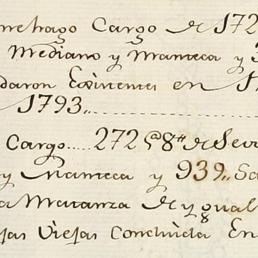 me hago Cargo de 172
Mediano y Manteca y
daron Existentes en 1
1793.,
Cargo.... 272 @s 8 tt de Sevo
y Manteca y 939 „ Sa
a Matanza de ygual
jas Viejas Concluida En